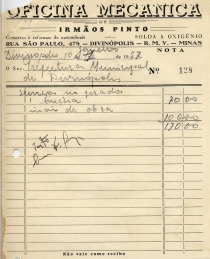 OFICINA MECANICA
DE
IRMÃOS PINTO
Consertos e reformas de automóveis SOLDA A OXIGÊNIO
RUA SÃO PAULO, 475 – DIVINÓPOLIS – R. M. V. – MINAS
NOTA
Divinópolis, 10 de 1957
O Snr. Prefeitura Municipal Nº 128
de Divinópolis
Serviços no
1 bucha 70 00
mais de obra 100 00
170 00
Não vale como recibo